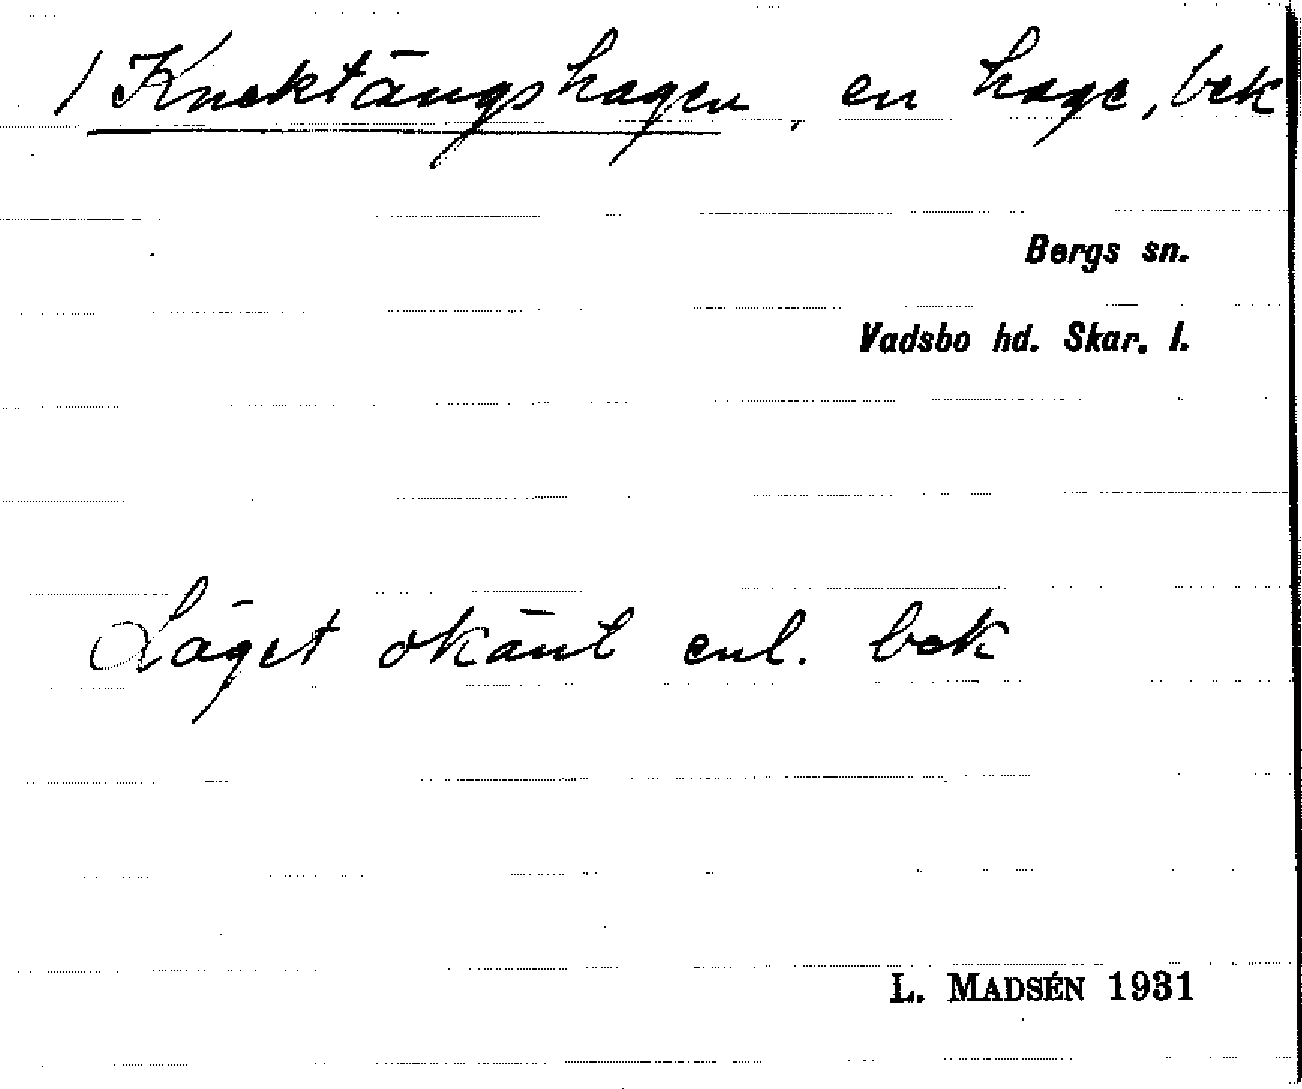 / Knektängshagen, en hage, bek
Bergs sn.
Vadsbo hd. Skar. l.
Läget okänt enl. bek
L. MADSÉN 1931